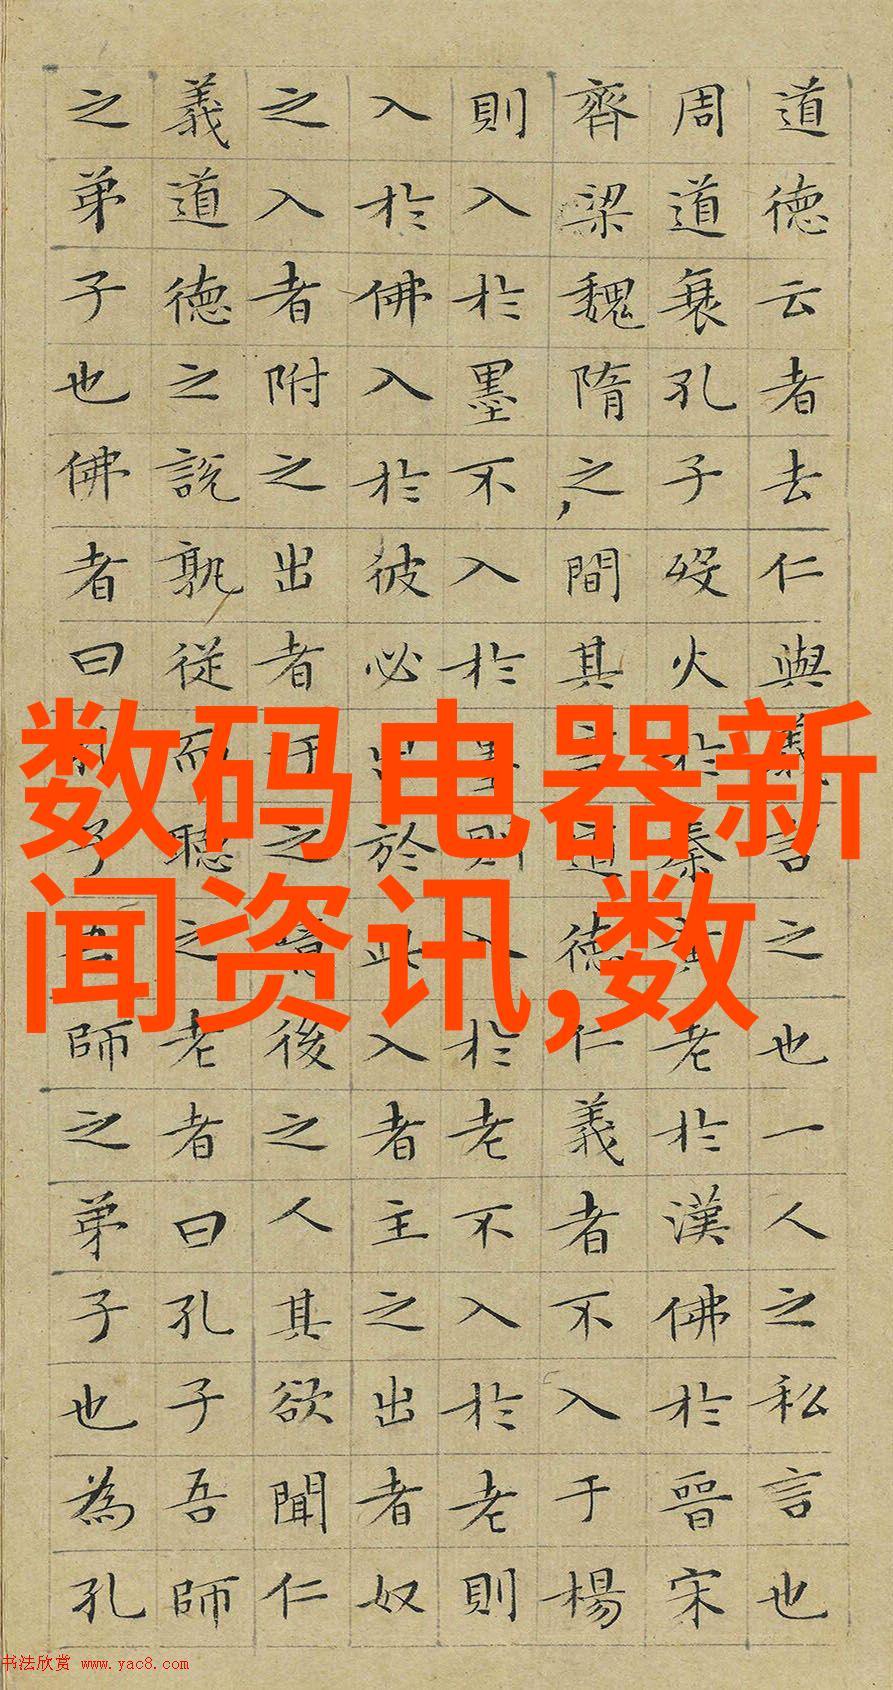 道德云者去仁與義言之也一人之私言也
周道衰孔子歿火於秦黃老於漢佛於晉宋
齊梁魏隋之間其言道德仁義者不入于楊
則入於墨不入於墨則入於老不入於老則
入於佛入於彼必出於此入者主之出者奴
之入者附之出者汙之噫後之人其欲聞仁
義道德之說孰從而聽之老者曰孔子吾師
之弟子也佛者曰孔子吾師之弟子也為孔
数码电器新
闻资讯,数
书法欣赏 www.yac8.com